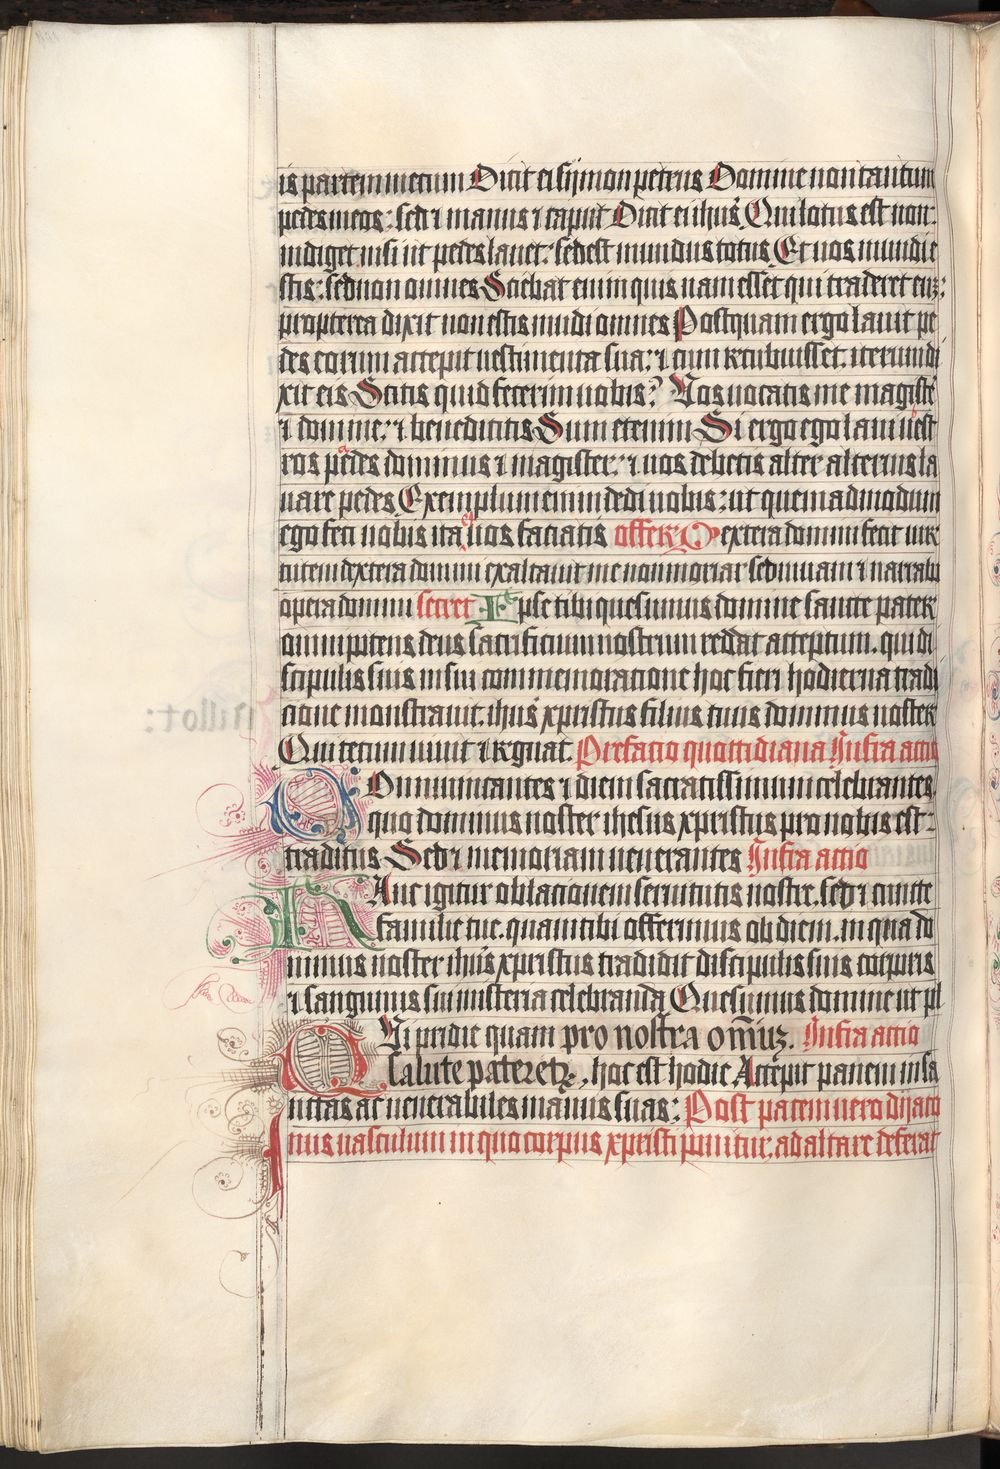 is partem mecum Dicit ei sijmon petrus Domine non tantum
pedes meos: sed ⁊ manus ⁊ caput Dicit ei ihūs Qui lotus est non
indiget nisi ut pedes lauet: sed est mundus totus Et uos mundi e
stis: sed non omnes Sciebat enim quis nam esset qui traderet euʒ:
propterea dixit non estis mūdi omnes Postquam ergo lauit pe
des eorum accepit uestimenta sua: ⁊ cum recubuisset iterum di
xit eis Scitis quid fecerim uobis? Uos uocatis me magistē
⁊ domine: ⁊ bene dicitis Sum etenim Si ergo ego laui uest
ros pedes dominus ⁊ magister: ⁊ uos debetis alter alterius la
uare pedes Exemplum enim dedi uobis: ut quemadmodum
ego feci uobis ita et uos faciatis offer Dextera domini fecit uir
tutem dextera domini exaltauit me non moriar sed uiuam ⁊ narrabo
opera domini secret Ipse tibi quesumus domine sancte pater
omnipotens deus sacrificium nostrum reddat acceptum. qui di
scipulis suis in sui commemoracione hoc fieri hodierna tradi
cione monstrauit. ihūs xpristus filius tuus dominus noster
Qui tecum uiuit ⁊ regnat. Prefacio quottidiana Infra actio
Communicantes ⁊ diem sacratissimum celebrantes.
quo dominus noster ihesus xpristus pro nobis est
traditus Sed ⁊ memoriam uenerantes Infra actio
Hanc igitur oblacionem seruitutis nostre. sed ⁊ cuncte
familie tue. quam tibi offerimus ob diem. in qua do
minus noster ihūs xpristus tradidit discipulis suis corporis
⁊ sanguinis sui misteria celebranda Quesumus domine ut pl
Qui pridie quam pro nostra om̄iuʒ. Infra actio
salute pateretʳ, hoc est hodie Accepit panem in sa
nctas ac uenerabiles manus suas: Post pacem uero dijaco
nus uasculum in quo corpus xpristi ponitur. ad altare deferat